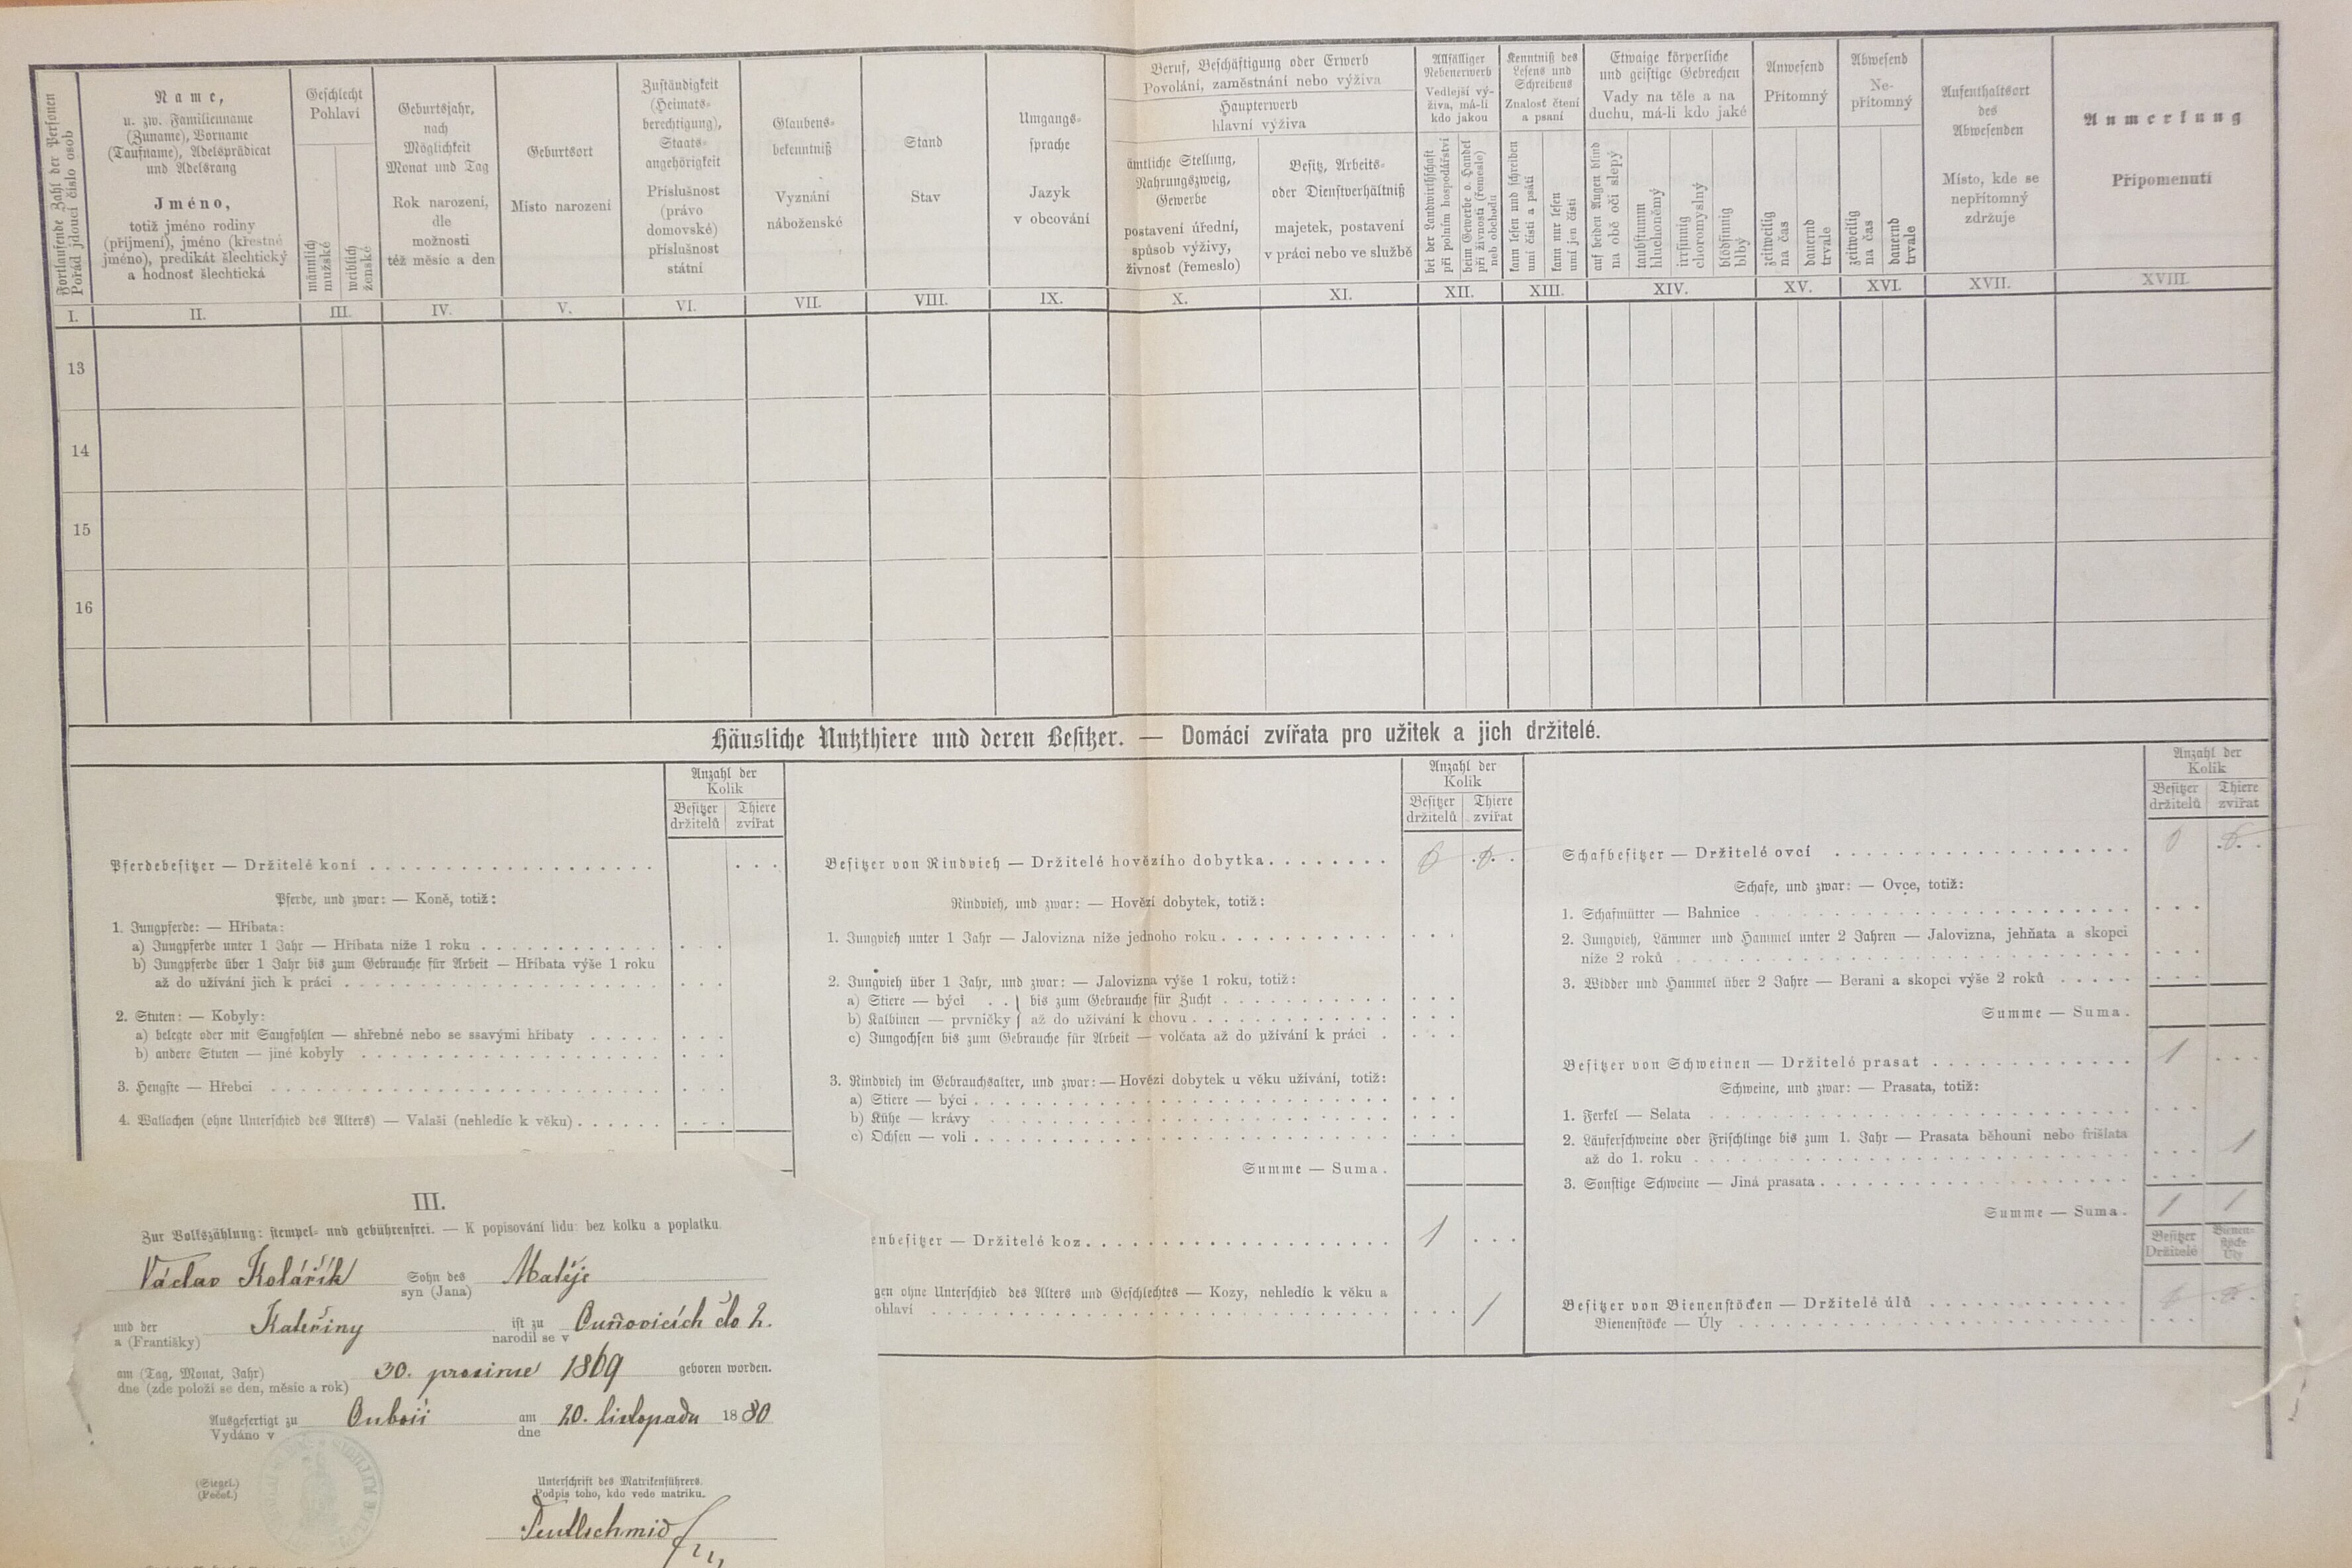 Fortlaufende Zahl der Personen
Pořád jdoucí číslo osob
Name,
u. zw. Familienname
(Zuname), Vorname
(Taufname), Adelsprädicat
und Adelsrang
Jméno,
totiž jméno rodiny
(příjmení), jméno (křestné
jméno), predikát šlechtický
a hodnosť šlechtická
Geschlecht
Pohlaví
männlich
mužské
weiblich
ženské
Geburtsjahr,
nach
Möglichkeit
Monat und Tag
Rok narození,
dle
možnosti
též měsíc a den
Geburtsort
Místo narození
Zuständigkeit
(Heimats-
berechtigung),
Staats-
angehörigkeit
Příslušnost
(právo
domovské)
příslušnost
státní
Glaubens-
bekenntniß
Vyznání
náboženské
Stand
Stav
Umgangs-
sprache
Jazyk
v obcování
Beruf, Beschäftigung oder Erwerb
Povolání, zaměstnání nebo výživa
Haupterwerb
hlavní výživa
ämtliche Stellung,
Nahrungszweig,
Gewerbe
postavení úřední,
spůsob výživy,
živnost (řemeslo)
Besitz, Arbeits-
oder Dienstverhältniß
majetek, postavení
v práci nebo ve službě
Allfälliger
Nebenerwerb
Vedlejší vý-
živa, má-li
kdo jakou
bei der Landwirthschaft
při polním hospodářství
beim Gewerbe o. Handel
při živnosti (řemesle)
neb obchodu
Kenntniß des
Lesens und
Schreibens
Znalosť čtení
a psaní
kann lesen und schreiben
umí čísti a psáti
kann nur lesen
umí jen čísti
Etwaige körperliche
und geistige Gebrechen
Vady na těle a na
duchu, má-li kdo jaké
auf beiden Augen blind
na obě oči slepý
taubstumm
hluchoněmý
irrsinnig
choromyslný
blödsinnig
blbý
Anwesend
Přítomný
zeitweilig
na čas
dauernd
trvale
Abwesend
Ne-
přítomný
zeitweilig
na čas
dauernd
trvale
Aufenthaltsort
des
Abwesenden
Místo, kde se
nepřítomný
zdržuje
Anmerkung
Připomenutí
I. II. III. IV. V. VI. VII. VIII. IX. X. XI. XII. XIII. XIV. XV. XVI. XVII. XVIII.
13
14
15
16
Häusliche Nutzthiere und deren Besitzer. — Domácí zvířata pro užitek a jich držitelé.
Anzahl der
Kolik
Besitzer Thiere
držitelů zvířat
Pferdebesitzer — Držitelé koní
Pferde, und zwar: — Koně, totiž:
1. Jungpferde: — Hříbata:
a) Jungpferde unter 1 Jahr — Hříbata níže 1 roku
b) Jungpferde über 1 Jahr bis zum Gebrauche für Arbeit — Hříbata výše 1 roku
až do užívání jich k práci
2. Stuten: — Kobyly:
a) belegte oder mit Saugfohlen — shřebné nebo se ssavými hříbaty
b) andere Stuten — jiné kobyly
3. Hengste — Hřebci
4. Wallachen (ohne Unterschied des Alters) — Valaši (nehledíc k věku)
Anzahl der
Kolik
Besitzer Thiere
držitelů zvířat
Besitzer von Rindvieh — Držitelé hovězího dobytka
Rindvieh, und zwar: — Hovězí dobytek, totiž:
1. Jungvieh unter 1 Jahr — Jalovizna níže jednoho roku
2. Jungvieh über 1 Jahr, und zwar: — Jalovizna výše 1 roku, totiž:
a) Stiere — býci . . } bis zum Gebrauche für Zucht
b) Kalbinen — prvničky } až do užívání k chovu
c) Jungochsen bis zum Gebrauche für Arbeit — volčata až do užívání k práci
3. Rindvieh im Gebrauchsalter, und zwar: — Hovězí dobytek u věku užívání, totiž:
a) Stiere — býci
b) Kühe — krávy
c) Ochsen — voli
Summe — Suma.
enbesitzer — Držitelé koz 1
gen ohne Unterschied des Alters und Geschlechtes — Kozy, nehledíc k věku a
ohlaví 1
Anzahl der
Kolik
Besitzer Thiere
držitelů zvířat
Schafbesitzer — Držitelé ovcí
Schafe, und zwar: — Ovce, totiž:
1. Schafmütter — Bahnice
2. Jungvieh, Lämmer und Hammel unter 2 Jahren — Jalovizna, jehňata a skopci
níže 2 roků
3. Widder und Hammel über 2 Jahre — Berani a skopci výše 2 roků
Summe — Suma.
Besitzer von Schweinen — Držitelé prasat 1
Schweine, und zwar: — Prasata, totiž:
1. Ferkel — Selata
2. Läuferschweine oder Frischlinge bis zum 1. Jahr — Prasata běhouni nebo frišlata
až do 1. roku 1
3. Sonstige Schweine — Jiná prasata
Summe — Suma. 1 1
Besitzer Bienen-
Držitelé stöcke
Úly
Besitzer von Bienenstöcken — Držitelé úlů
Bienenstöcke — Úly
III.
Zur Volkszählung: stempel- und gebührenfrei. — K popisování lidu: bez kolku a poplatku.
Václav Kolářík Sohn des Matěje
syn (Jana)
und der Kateřiny ist zu Ouňovicích člo 2.
a (Františky) narodil se v
am (Tag, Monat, Jahr) 30. prosince 1869 geboren worden.
dne (zde položí se den, měsíc a rok)
Ausgefertigt zu Ouboči am 20. listopadu 1880
Vydáno v dne
(Siegel.)
(Pečeť.)
Unterschrift des Matrikenführers.
Podpis toho, kdo vede matriku.